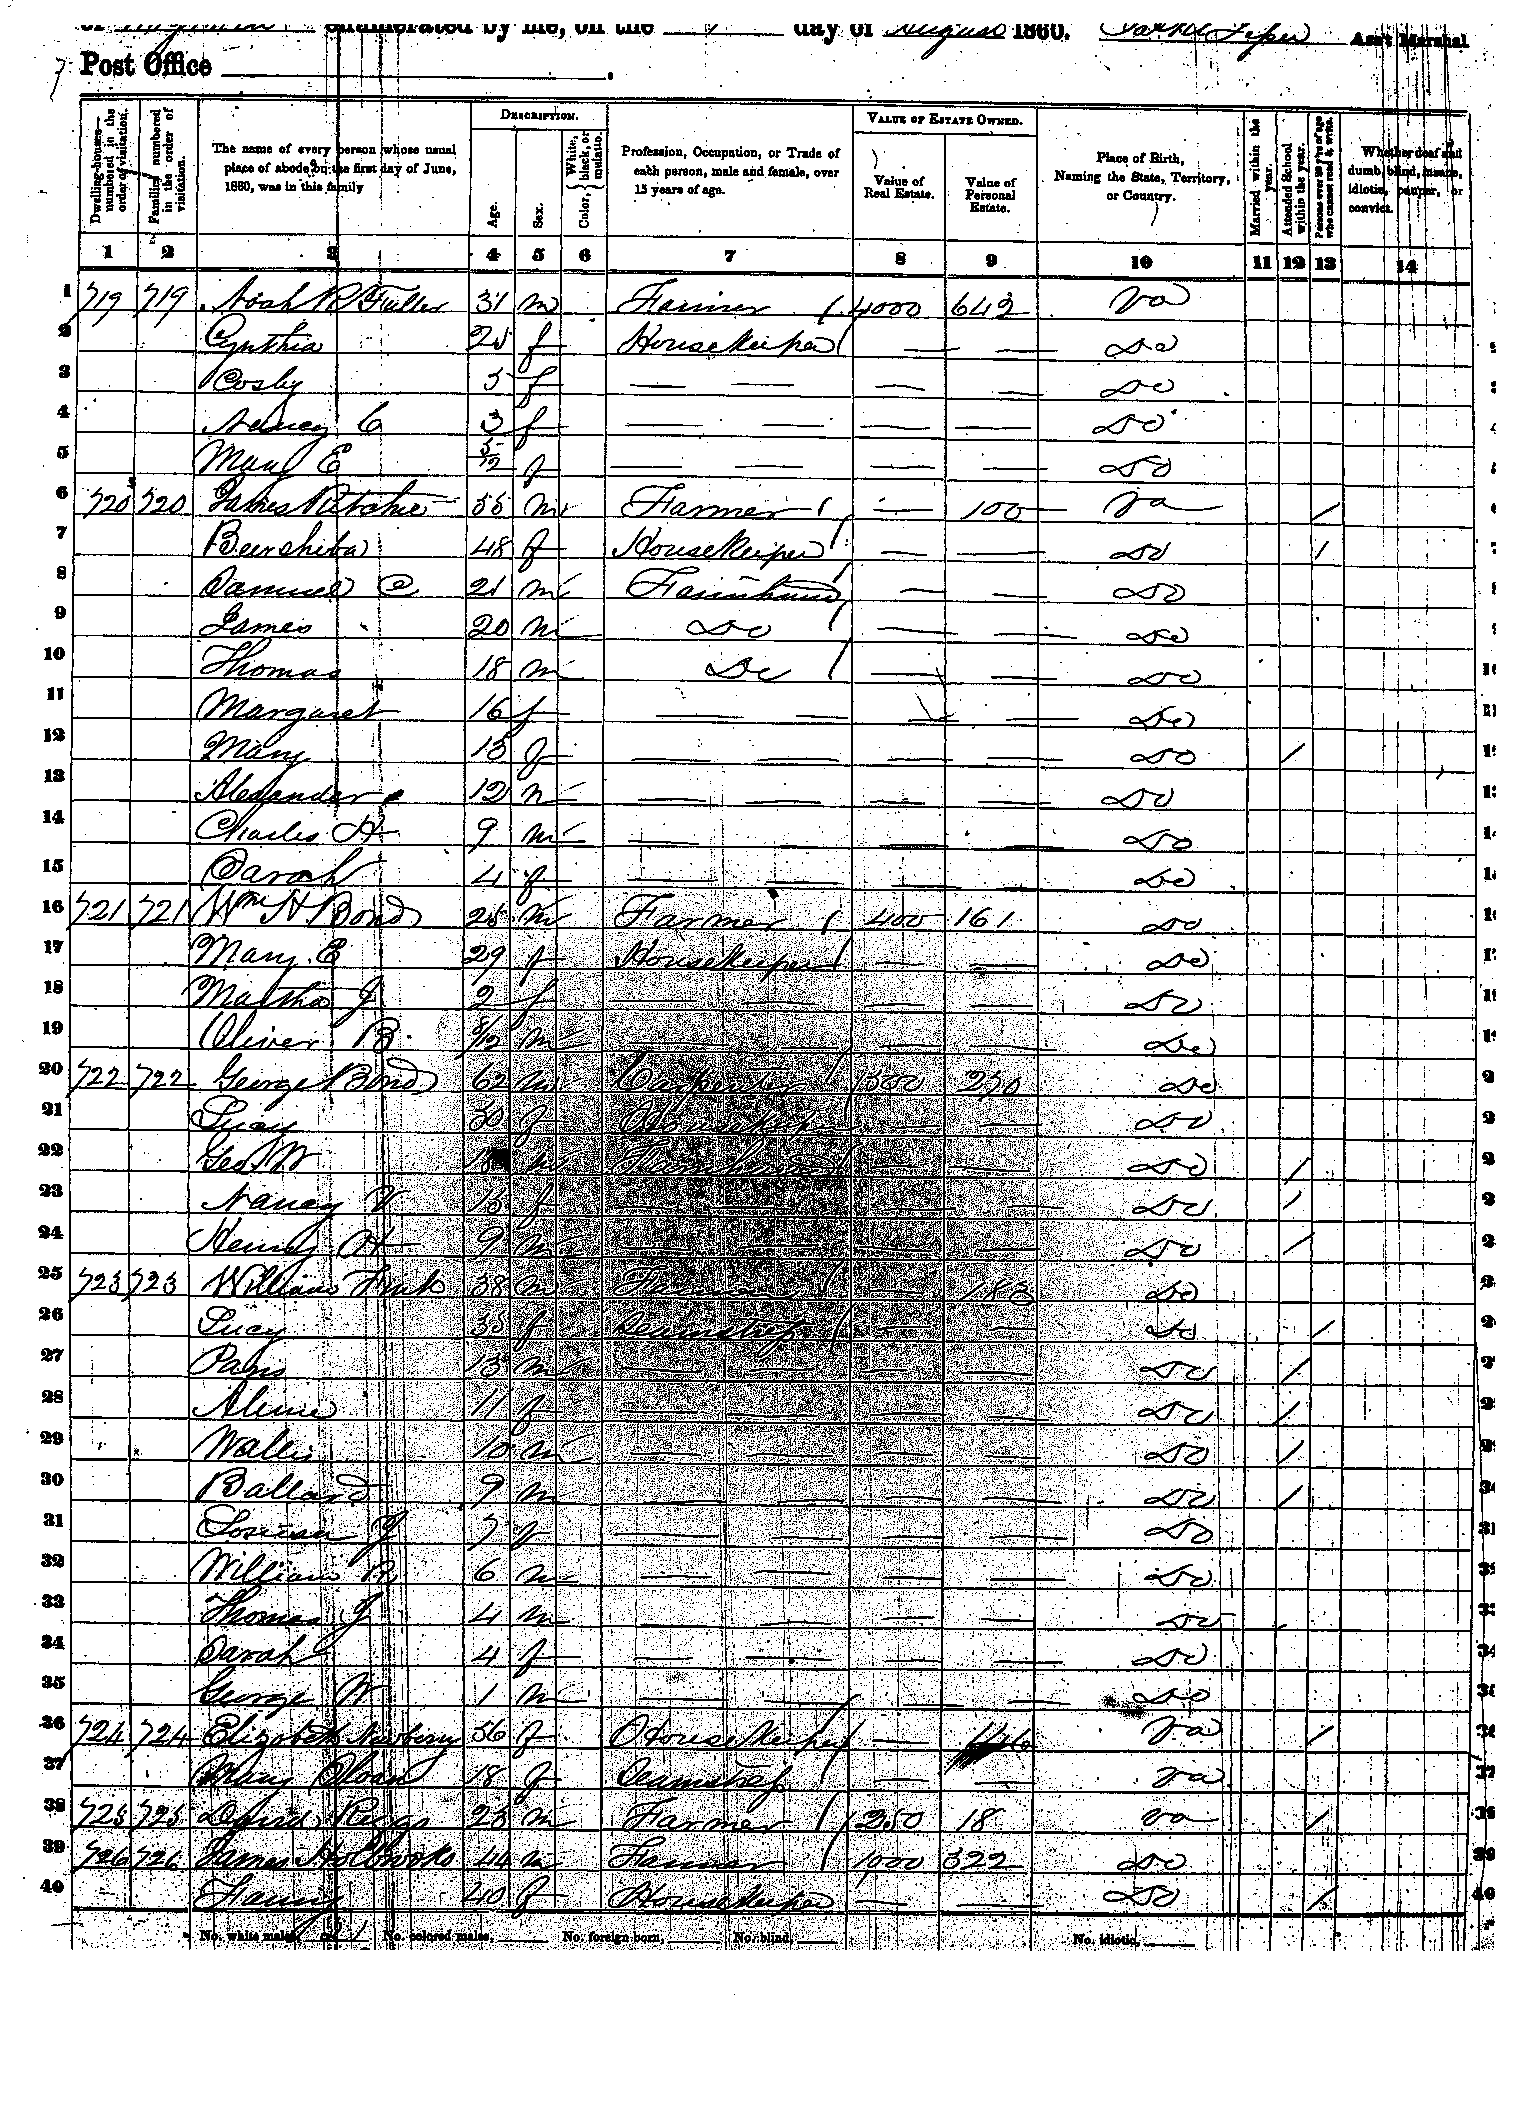 enumerated by me, on the day of August 1860. Ass't Marshal
Post Office
Dwelling-houses— numbered in the order of visitation.
Families numbered in the order of visitation.
The name of every person whose usual place of abode on the first day of June, 1860, was in this family
DESCRIPTION.
Age.
Sex.
Color, White, black, or mulatto.
Profession, Occupation, or Trade of each person, male and female, over 15 years of age.
VALUE OF ESTATE OWNED.
Value of Real Estate.
Value of Personal Estate.
Place of Birth, Naming the State, Territory, or Country.
Married within the year.
Attended School within the year.
Persons over 20 years of age who cannot read & write.
Whether deaf and dumb, blind, insane, idiotic, pauper, or convict.
1 2 3 4 5 6 7 8 9 10 11 12 13 14
1 719 719 Noah R Fuller 31 m Farmer 4000 642 Va
2 Cynthia f Housekeeper — — Do
3 Cosby 5 f — — — — Do
4 Nancy C 3 f — — — — Do
5 Mary E 5/12 f — — — — Do
6 720 720 James Ritchie 55 m Farmer — 100 Va /
7 Beershiba 48 f Housekeeper — — Do /
8 Samuel C 21 m Farmhand — — Do
9 James 20 m Do — — Do
10 Thomas 18 m Do — — Do
11 Margaret 16 f — — — — Do
12 Mary 15 f — — — — Do /
13 Alexander 12 m — — — — Do
14 Charles H 9 m — — — — Do
15 Sarah 4 f — — — — Do
16 721 721 Wm H Bond 25 m Farmer 400 161 Do
17 Mary E 29 f Housekeeper — — Do
18 Martha J 2 f — — — — Do
19 Oliver B 8/12 m — — — — Do
20 722 722 George Bond 62 m Carpenter 1500 250 Do
21 Lucy f Housekeeper — — Do
22 Geo W m Farmhand — — Do /
23 Nancy V 15 f — — — — Do /
24 Henry H 9 m — — — — Do /
25 723 723 William 38 m Farmer — 183 Do
26 Lucy 35 f Seamstress — — Do /
27 Paris 13 m — — — — Do /
28 11 f — — — — Do /
29 10 m — — — — Do /
30 Ballard 9 m — — — — Do /
31 Louisa J 7 f — — — — Do
32 William R 6 m — — — — Do
33 Thomas J 4 m — — — — Do
34 Sarah 4 f — — — — Do
35 George W 1 m — — — — Do
36 724 724 Elizabeth Newberry 56 f Housekeeper — Va /
37 Mary Sloan 18 f Seamstress — — Va
38 725 725 David Riggs 25 m Farmer 250 18 Va /
39 726 726 James H 44 m Farmer 1000 322 Do
40 Fanny 40 f Housekeeper — — Do /
No. white males, No. colored males, No. foreign born, No. blind, No. idiotic,